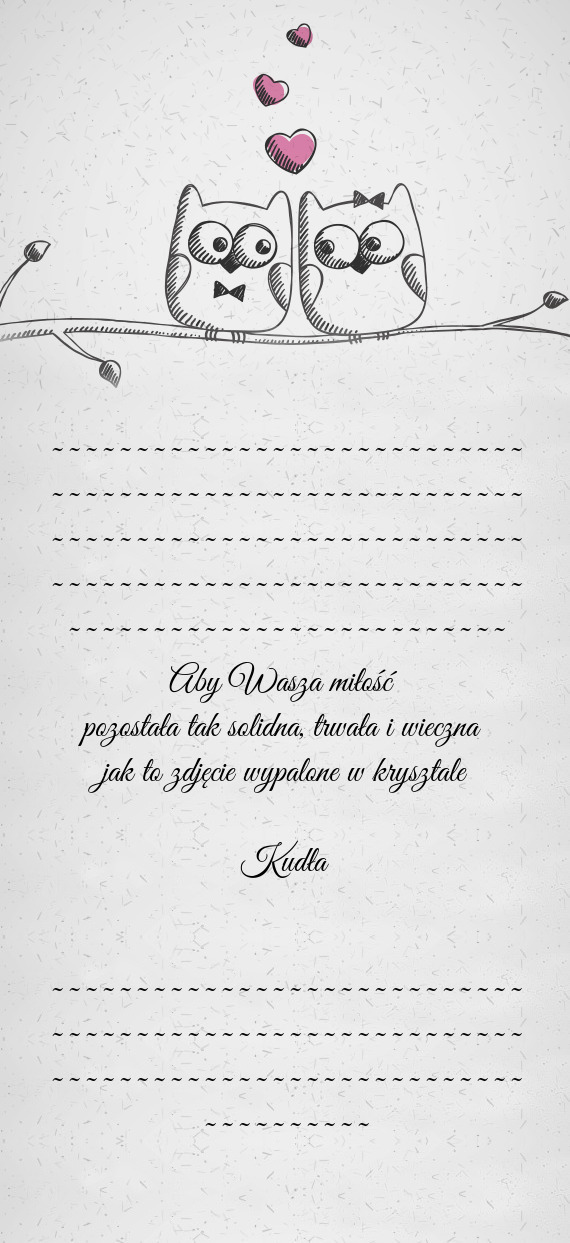 ~~~~~~~~~~~~~~~~~~~~~~~~~~~~
~~~~~~~~~~~~~~~~~~~~~~~~~~~~
~~~~~~~~~~~~~~~~~~~~~~~~~~~~
~~~~~~~~~~~~~~~~~~~~~~~~~~~~
~~~~~~~~~~~~~~~~~~~~~~~~~~
Aby Wasza miłość
pozostała tak solidna, trwała i wieczna
jak to zdjęcie wypalone w krysztale
Kudła
~~~~~~~~~~~~~~~~~~~~~~~~~~~~
~~~~~~~~~~~~~~~~~~~~~~~~~~~~
~~~~~~~~~~~~~~~~~~~~~~~~~~~~
~~~~~~~~~~